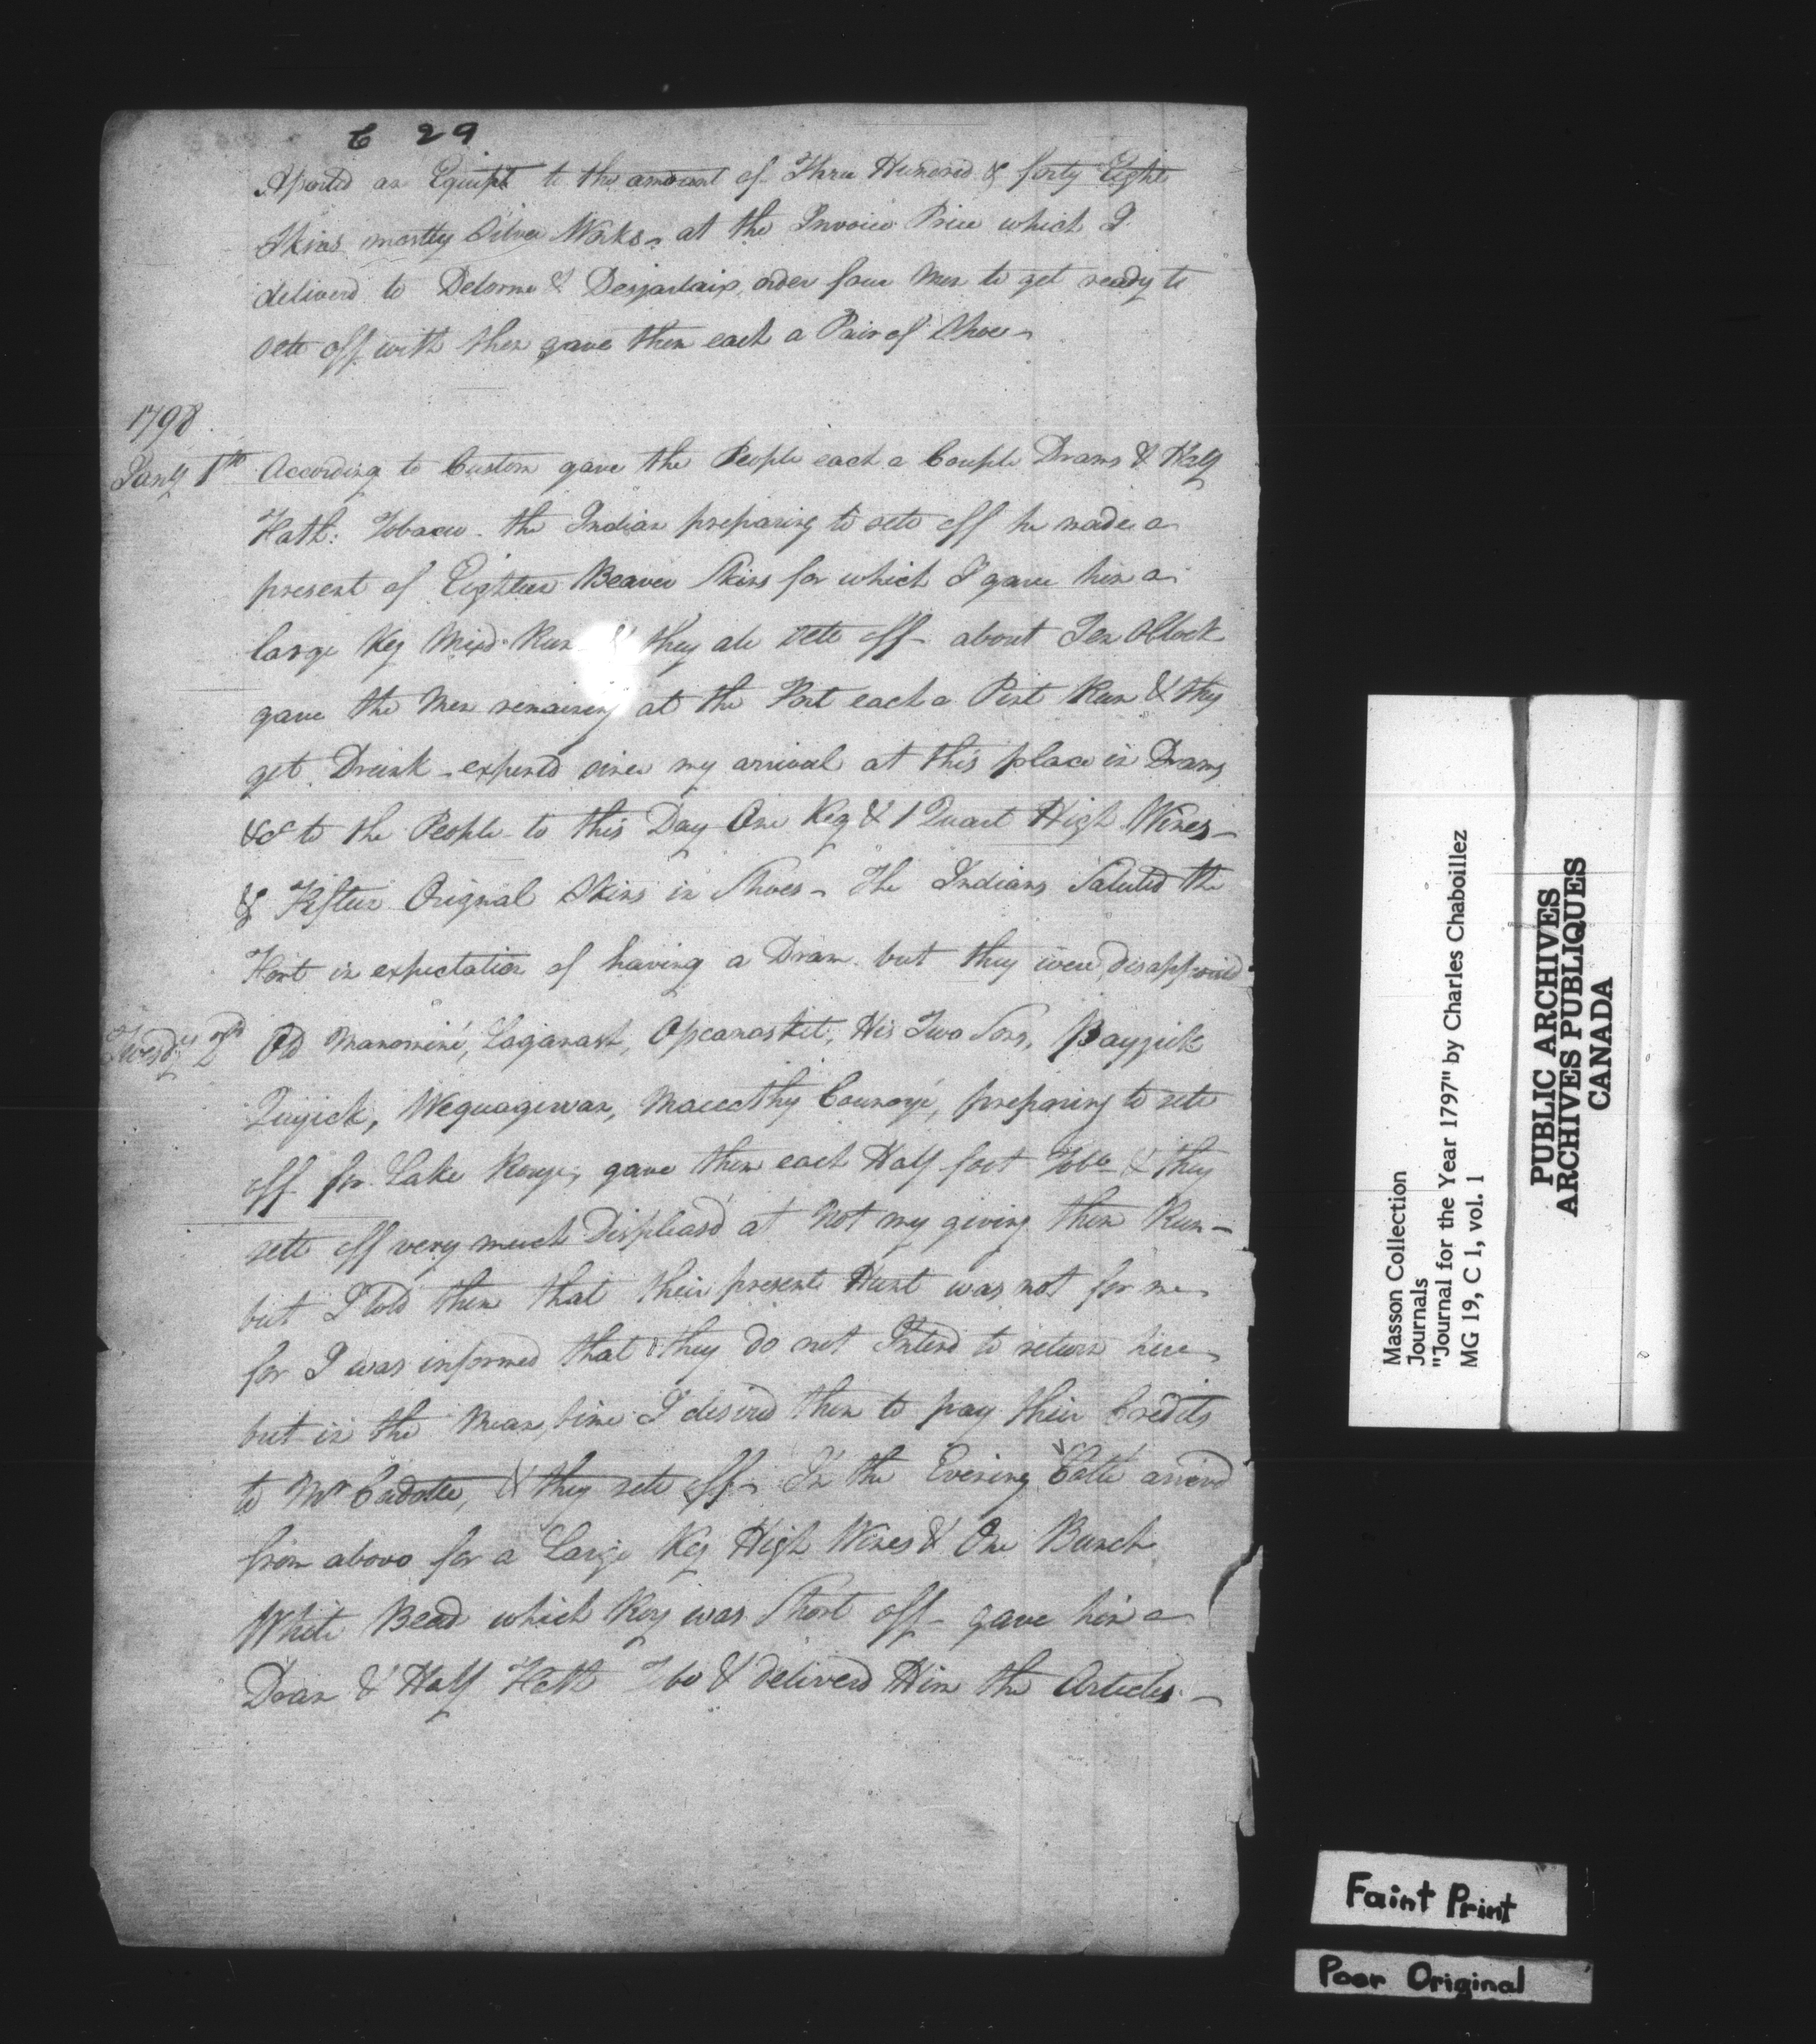 C 29
Asorted an Equipt to the amount of Three Hundred & forty Eight
Skins mostly Silver Works – at the Invoice Price which I
deliverd to Delorme & Desjarlaix, order four Men to get ready to
sett off with them gave them each a Pair of Shoes –
1798
Jany 1st According to Custom gave the People each a Couple Drams & Half
Fath: Tobacco – the Indian preparing to sett off he made a
present of Eighteen Beaver Skins for which I gave him a
large Keg Mixd Rum & they all sett off – about Ten OClock
gave the Men remaining at the Fort each a Pint Rum & they
get Drunk – expend since my arrival at this place in Drams
&c to the People to this Day One Keg & 1 Quart High Wines –
& Fifteen Orignal Skins in Shoes – The Indians Saluted the
Fort in expectation of having a Dram but they were disappointed
Tuesdy 2nd Old Manominé, Laganash, Opcanasket, His Two Sons,
Quijick, Wequagewan, preparing to sett
off for Lake Rouge, gave them each Half foot Tobb & they
sett off very much Displeasd at Not my giving them Rum –
but I told them that their present Hunt was not for me
for I was informed that they do not Intend to return here
but in the Mean time I desired them to pay their Credits
to Mr Cadotte, & they sett off – In the Evening Colté arrivd
from above for a Large Keg High Wines & One Bunch
White Bead which Roy was Short off – gave him a
Dram & Half Fath Tbo & deliverd Him the Articles –
Masson Collection
Journals
"Journal for the Year 1797" by Charles Chaboillez
MG 19, C 1, vol. 1
PUBLIC ARCHIVES
ARCHIVES PUBLIQUES
CANADA
Faint Print
Poor Original